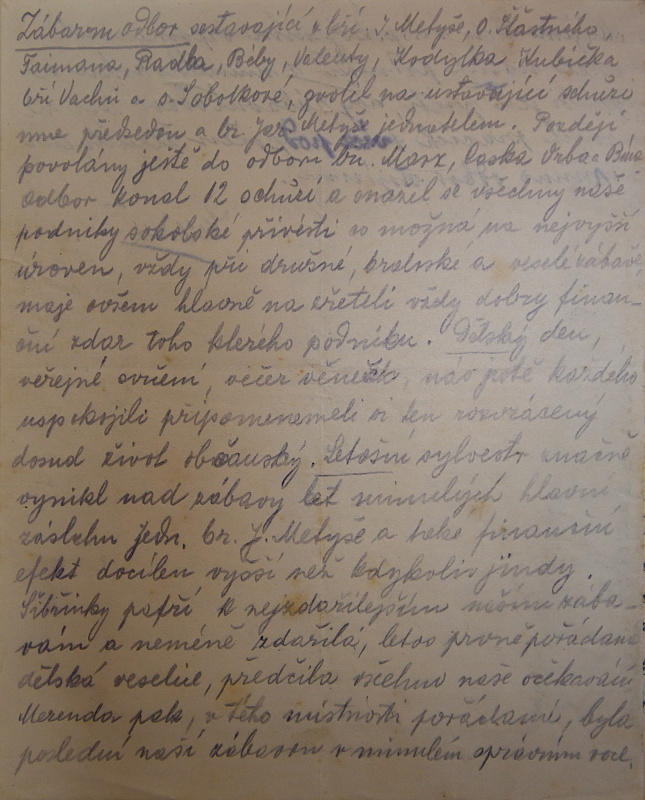 Zábavní odbor sestávající z bří. J. Metyše, O. Šťastného,
Taimana, Radba, Béby, Valenty, Kodytka Kubíčka
bří Vachů a s. Sobotkové, zvolil na ustavující schůzi
mne předsedou a br. Jar. Metyše jednatelem. Později
povoláni ještě do odboru br. Marx, Caska Vrba a
odbor konal 12 schůzí a snažil se všechny naše
podniky sokolské přivésti co možná na nejvyšší
úroveň, vždy při družné, bratrské a veselé zábavě,
maje ovšem hlavně na zřeteli vždy dobrý finan-
ční zdar toho kterého podniku. Dětský den,
veřejné cvičení, večer věneček, nás jistě každého
uspokojili připomeneme li si ten rozvrácený
dosud život občanský. Letošní sylvestr značně
vynikl nad zábavy let minulých hlavní
zásluhu jedn. br. J. Metyše a také finanční
efekt docílen vyšší než kdykoliv jindy.
Šibřinky patří k nejzdařilejším našim zába-
vám a neméně zdařilá, letos prvně pořádaná
dětská veselice, předčila všechno naše očekávání
Merenda pak, v této místnosti pořádaná, byla
poslední naší zábavou v minulém správním roce.